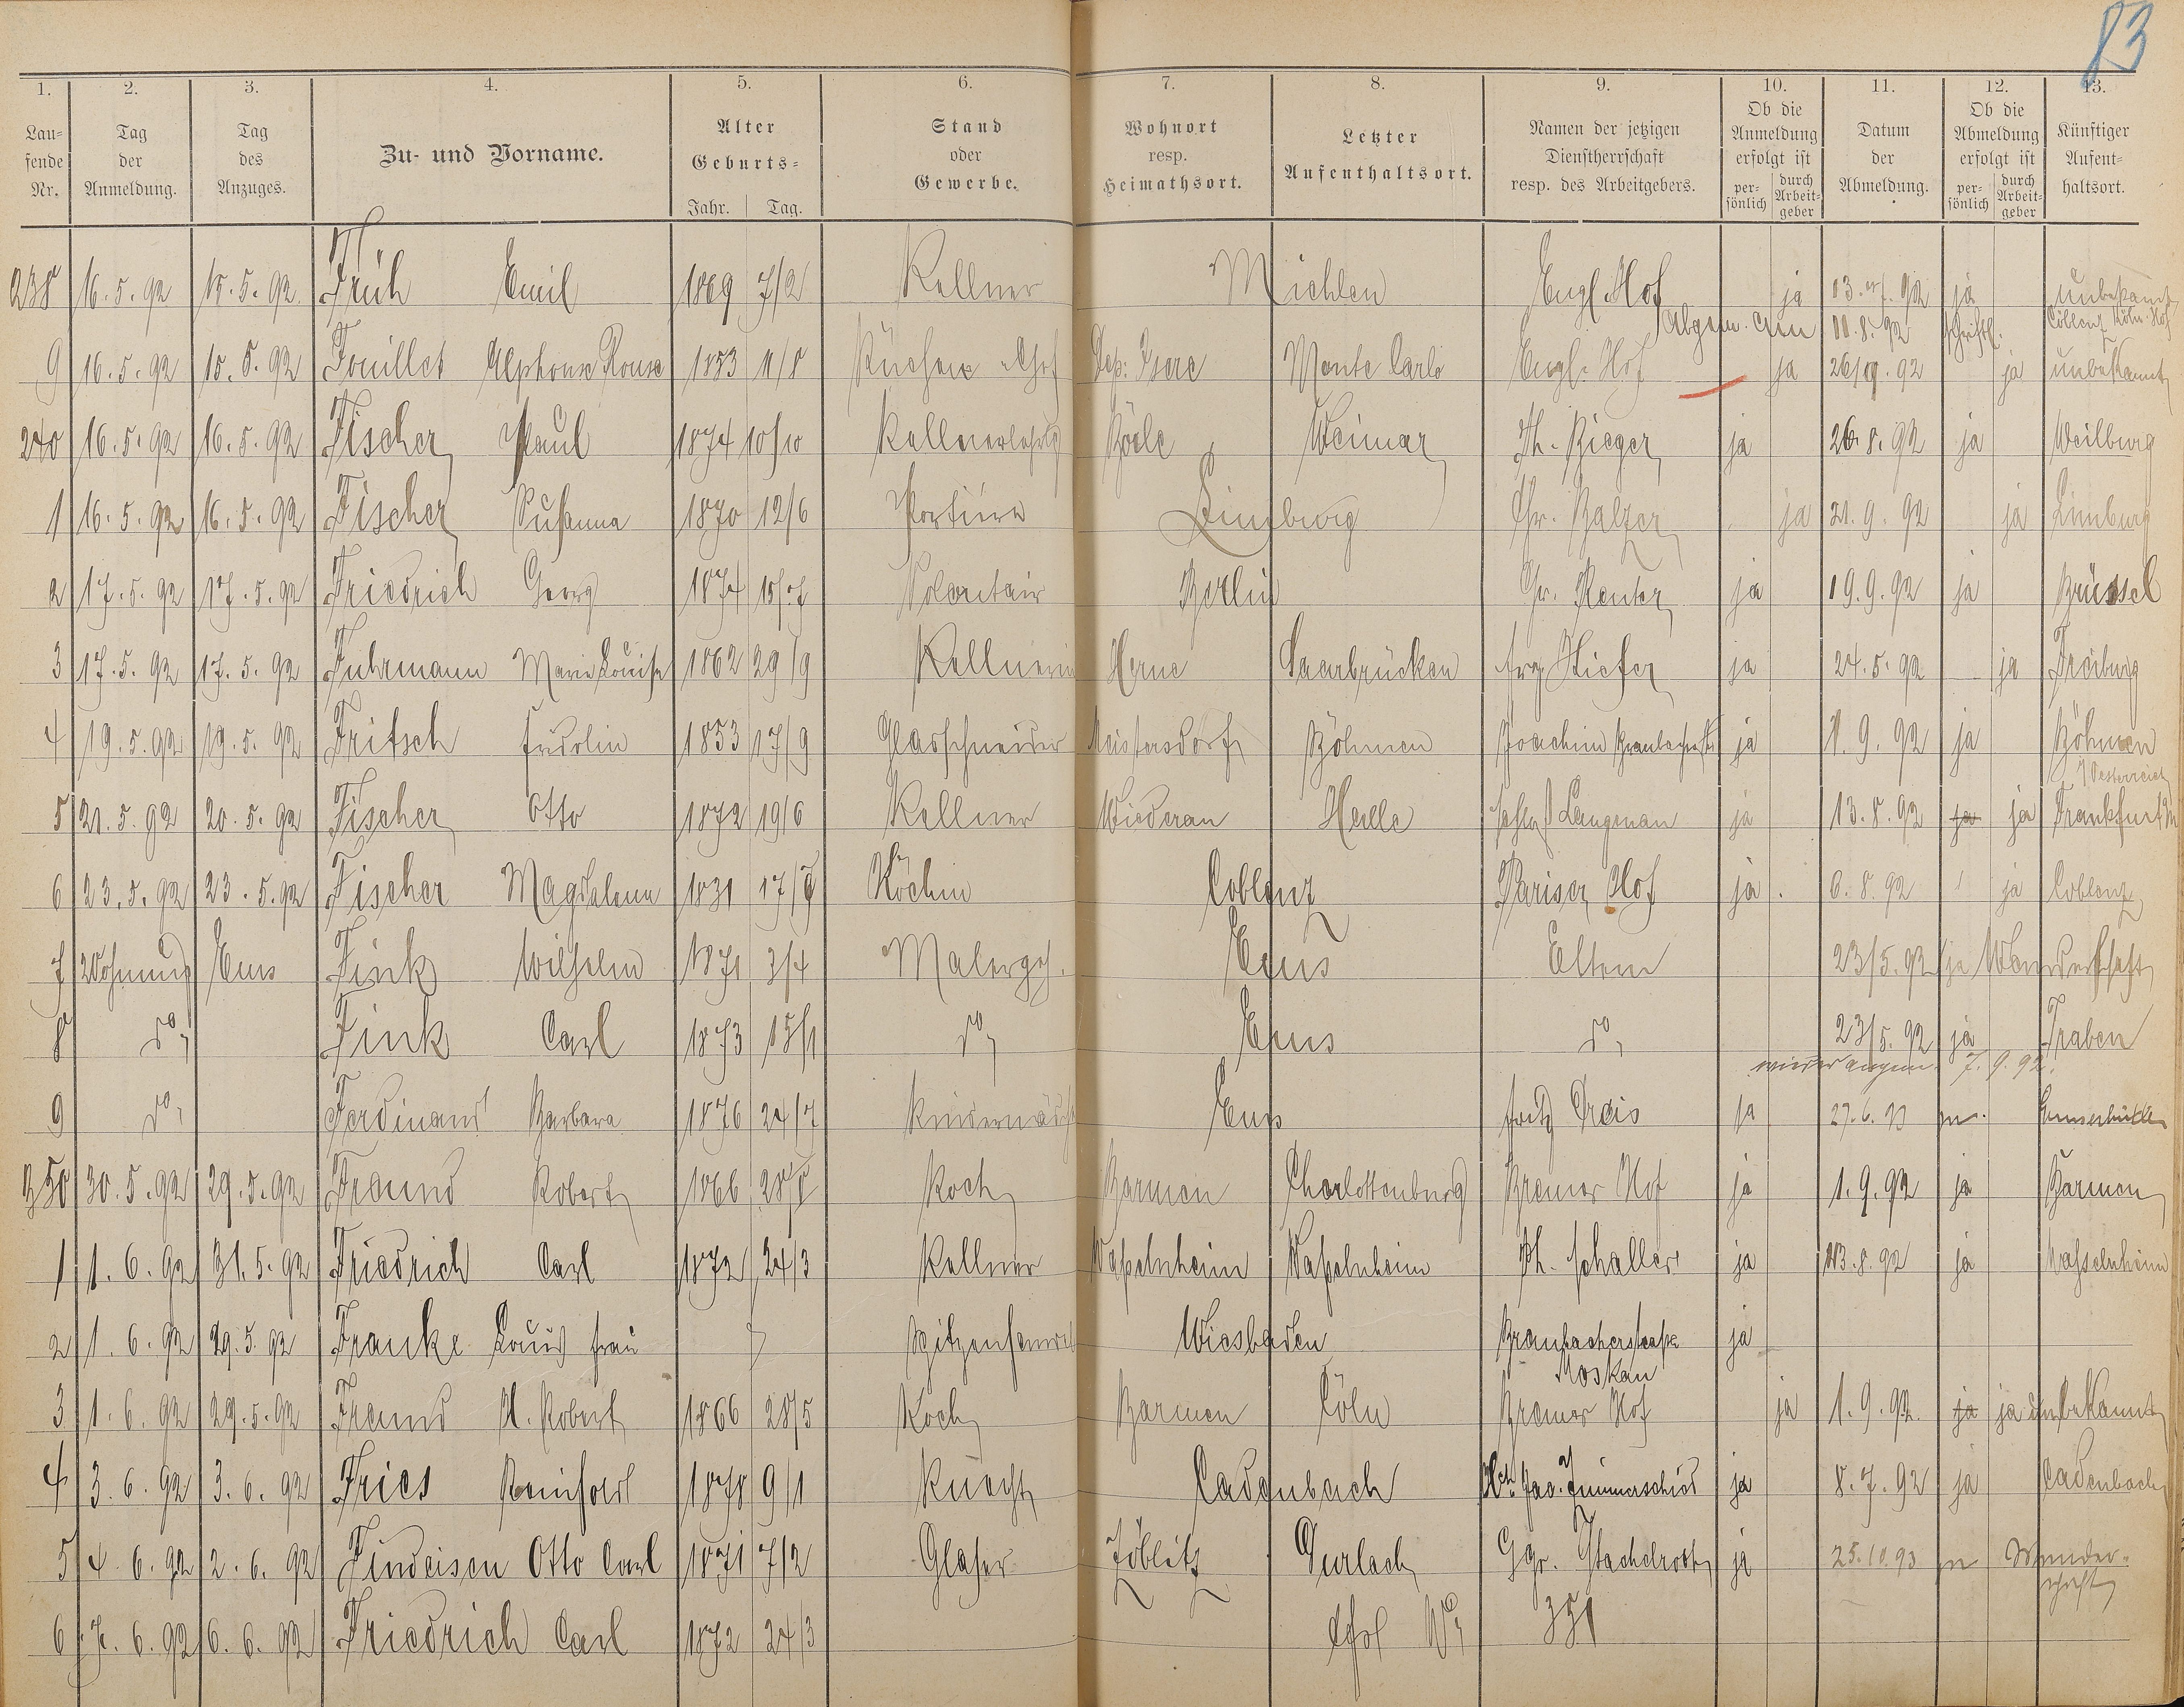 83
1. 2. 3. 4. 5. 6. 7. 8. 9. 10. 11. 12. 13.
Laufende Nr. Tag der Anmeldung. Tag des Anzuges. Zu- und Vorname. Alter Geburts- Jahr. Tag. Stand oder Gewerbe. Wohnort resp. Heimathsort. Letzter Aufenthaltsort. Namen der jetzigen Dienstherrschaft resp. des Arbeitgebers. Ob die Anmeldung erfolgt ist persönlich durch Arbeitgeber Datum der Abmeldung. Ob die Abmeldung erfolgt ist persönlich durch Arbeitgeber Künftiger Aufenthaltsort.
238 16.5.92 15.5.92 Früh Emil 1869 7/2 Kellner Michlen Engl. Hof ja ja unbekannt
11.8.92 schriftl. Coblenz Köln. Hof
9 16.5.92 15.5.92 Fouillet Alphonse 1853 Küchen Chef Dep. Isere Monte Carlo Engl. Hof ja 26/9.92 ja unbekannt
240 16.5.92 16.5.92 Fischer Paul 1874 10/10 Kellnerlehrlg Weimar Th. Rieger ja 26.8.92 ja Weilburg
1 16.5.92 16.5.92 Fischer Susanna 1870 12/6 Limburg Chr. Balzer ja 21.9.92 ja Limburg
2 17.5.92 17.5.92 Friedrich Georg 1874 15/7 Volontair Berlin Chr. Reuter ja 19.9.92 ja Brüssel
3 17.5.92 17.5.92 Fuhrmann Marie Louise 1862 29/9 Kellnerin Herne Saarbrücken Kiefer ja 24.5.92 ja Freiburg
4 19.5.92 19.5.92 Fritsch Fridolin 1853 17/9 Glasschneider Meistersdorf Böhmen Joachim ja 1.9.92 ja Böhmen
i/Oesterreich
5 21.5.92 20.5.92 Fischer Otto 1872 19/6 Kellner Wiederau Halle Langman ja 13.8.92 ja ja Frankfurt a/M
6 23.5.92 23.5.92 Fischer Magdalena 1831 Köchin Coblenz Pariser Hof ja 6.8.92 ja Coblenz
7 Wohnung Ems Fink Wilhelm 1871 3/4 Malergeh. Ems Eltern 23/5.92 ja Wanderschaft
8 do Fink Carl 1873 15/1 do Ems do 23/5.92 ja Traben
wieder angem. 7.9.92.
9 do Ferdinand Barbara 1876 24/7 Kindermädch Ems Dreis ja ja Emserhütte
250 30.5.92 29.5.92 Freund Robert 1866 28/5 Koch Barmen Charlottenburg Bremer Hof ja 1.9.92 ja Barmen
1 1.6.92 31.5.92 Friedrich Carl 1872 24/3 Kellner Waßelnheim Waßelnheim Ph. Schaller ja 13.8.92 ja Wasselnheim
2 1.6.92 29.5.92 Franke Louis Frau Spitzenhandl Wiesbaden Braubacherstraße ja
Moskau
3 1.6.92 29.5.92 Freund H. Robert 1866 28/5 Koch Barmen Cöln Bremer Hof ja 1.9.92 ja ja unbekannt
4 3.6.92 3.6.92 Fries Reinhard 1878 9/1 Knecht Cadenbach Jac. Zimmerschied ja 8.7.92 ja Cadenbach
5 4.6.92 2.6.92 Findeisen Otto Carl 1871 7/2 Glaser Zöblitz Durlach Ggr. Stachelroth ja 25.10.93 ja Wanderschaft
6 7.6.92 6.6.92 Friedrich Carl 1872 24/3 No 351